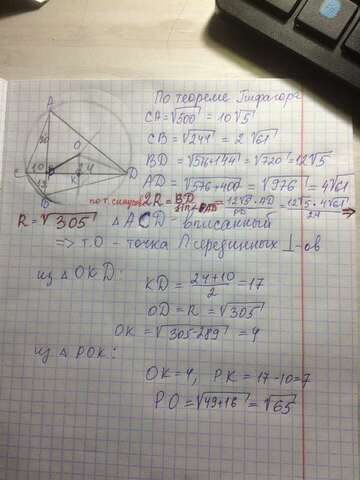 A
O
20
10
P
4
C
K
D
12
B
По теореме Пифагора
CA = √500 = 10√5
CB = √244 = 2√61
BD = √576+144 = √720 = 12√5
AD = √576+400 = √976 = 4√61
по т. синусов 2R = BD/sin∠BAD = 12√5 · AD/PD = 12√5 · 4√61/24 ⇒
R = √305 △ACD - вписанный
=> т.О - точка ∩ серединных ⊥-ов
из △OKD:
KD = 24+10/2 = 17
OD = R = √305
OK = √305-289 = 4
из △POK:
OK = 4, PK = 17-10=7
PO = √49+16 = √65